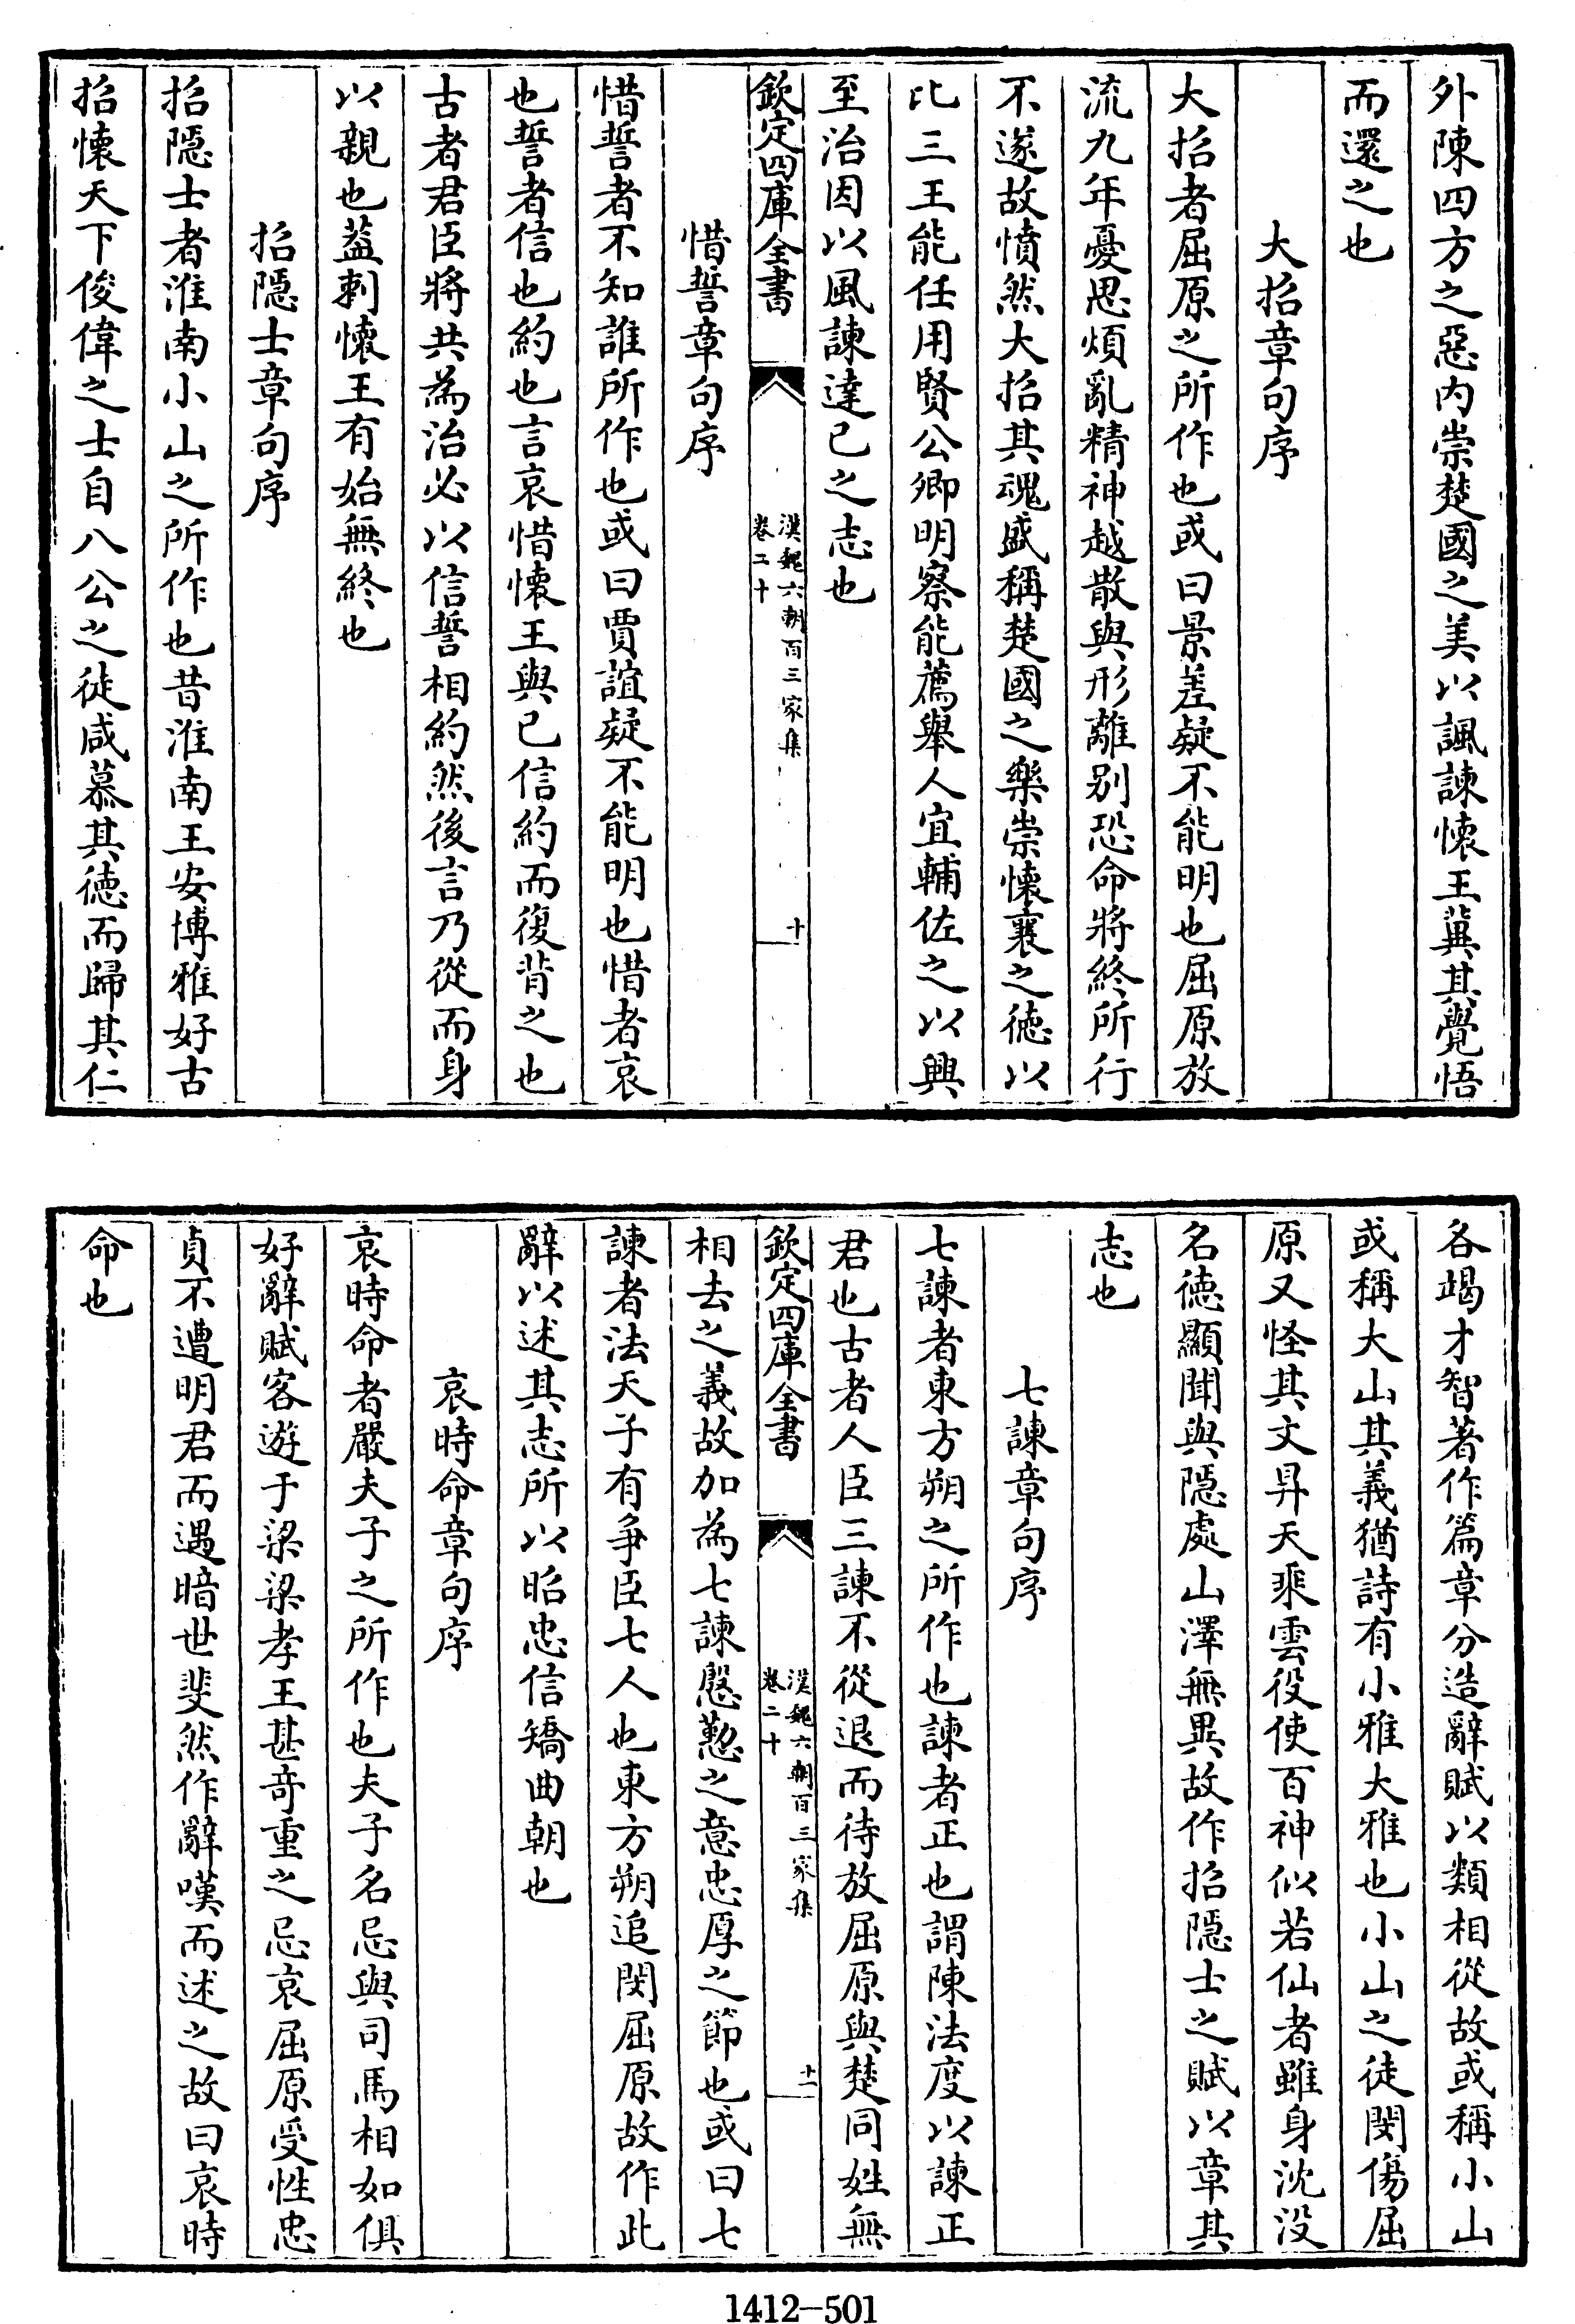 外陳四方之惡内崇楚國之美以諷諫懐王冀其覺悟
而還之也
大招章句序
大招者屈原之所作也或曰景差疑不能明也屈原放
流九年憂思煩亂精神越散與形離别恐命將終所行
不遂故憤然大招其魂盛稱楚國之樂崇懐襄之徳以
比三王能任用賢公卿明察能薦舉人宜輔佐之以興
至治因以風諫達已之志也
欽定四庫全書
漢魏六朝百三家集
卷二十
十
惜誓章句序
惜誓者不知誰所作也或曰賈誼疑不能明也惜者哀
也誓者信也約也言哀惜懐王與已信約而復背之也
古者君臣將共為治必以信誓相約然後言乃從而身
以親也葢刺懐王有始無終也
招隠士章句序
招隠士者淮南小山之所作也昔淮南王安博雅好古
招懐天下俊偉之士自八公之徒咸慕其徳而歸其仁
各竭才智著作篇章分造辭賦以類相從故或稱小山
或稱大山其義猶詩有小雅大雅也小山之徒閔傷屈
原又怪其文昇天乘雲役使百神似若仙者雖身沈没
名徳顯聞與隠處山澤無異故作招隠士之賦以章其
志也
七諫章句序
七諫者東方朔之所作也諫者正也謂陳法度以諫正
君也古者人臣三諫不從退而待放屈原與楚同姓無
欽定四庫全書
漢魏六朝百三家集
卷二十
十一
相去之義故加為七諫慇懃之意忠厚之節也或曰七
諫者法天子有爭臣七人也東方朔追閔屈原故作此
辭以述其志所以昭忠信矯曲朝也
哀時命章句序
哀時命者嚴夫子之所作也夫子名忌與司馬相如俱
好辭賦客遊于梁梁孝王甚奇重之忌哀屈原受性忠
貞不遭明君而遇暗世斐然作辭嘆而述之故曰哀時
命也
1412-501